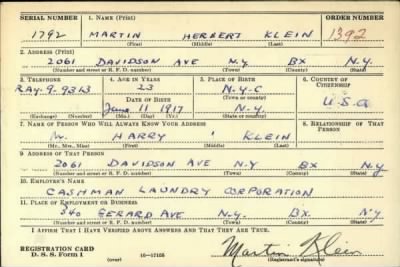 SERIAL NUMBER 1. NAME (Print) ORDER NUMBER
1792 MARTIN HERBERT KLEIN 1392
(First) (Middle) (Last)
2. ADDRESS (Print)
2061 DAVIDSON AVE N.Y. BX N.Y.
(Number and street or R. F. D. number) (Town) (County) (State)
3. TELEPHONE 4. AGE IN YEARS 5. PLACE OF BIRTH 6. COUNTRY OF CITIZENSHIP
RAY. 9-9363 23 N.Y.C U.S.A
DATE OF BIRTH (Town or county)
June 11 1917 N.Y.
(Exchange) (Number) (Mo.) (Day) (Yr.) (State or country)
7. NAME OF PERSON WHO WILL ALWAYS KNOW YOUR ADDRESS 8. RELATIONSHIP OF THAT PERSON
HARRY KLEIN
(Mr., Mrs., Miss) (First) (Middle) (Last)
9 ADDRESS OF THAT PERSON
2061 DAVIDSON AVE N.Y BX N.Y
(Number and street or R. F. D. number) (Town) (County) (State)
10. EMPLOYER'S NAME
CASHMAN LAUNDRY CORPORATION
11. PLACE OF EMPLOYMENT OR BUSINESS
340 GERARD AVE N.Y. BX. N.Y
(Number and street or R. F. D. number) (Town) (County) (State)
I AFFIRM THAT I HAVE VERIFIED ABOVE ANSWERS AND THAT THEY ARE TRUE.
REGISTRATION CARD
D. S. S. Form 1 (over) 16-17105 Martin Klein
(Registrant's signature)